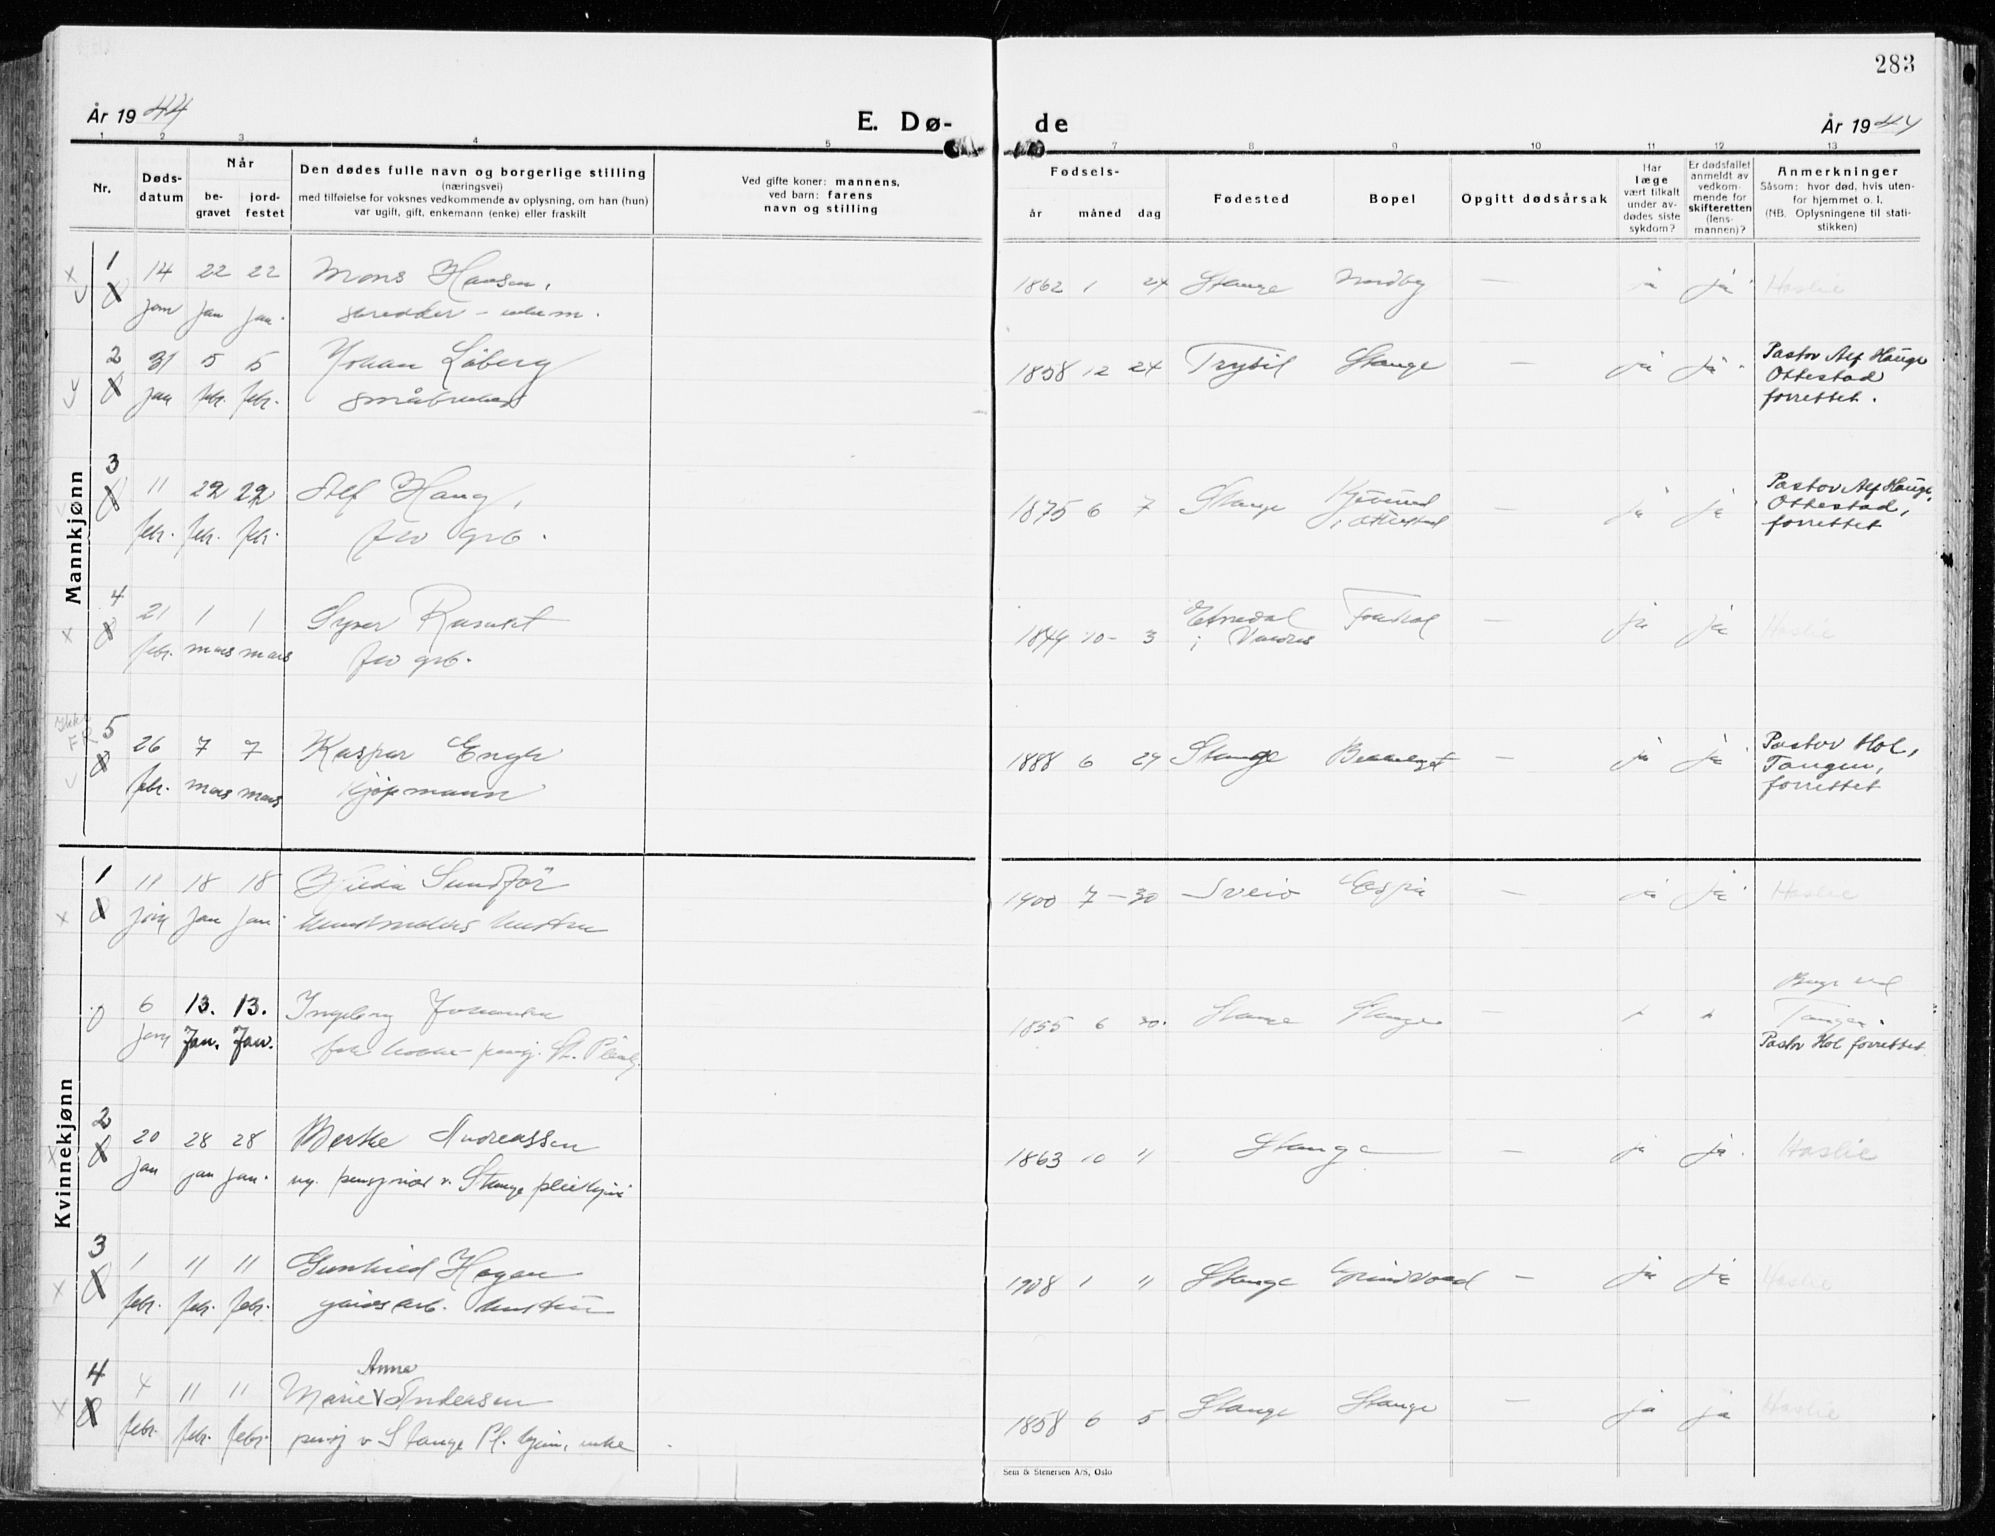 283
År 1944
E. Dø-
de
År 1944
1 2 3 4 5
7 8 9 10 11 12 13
Nr.
Døds-
datum
Når
be-
gravet
jord-
festet
Den dødes fulle navn og borgerlige stilling
(næringsvei)
med tilføielse for voksnes vedkommende av oplysning, om han (hun)
var ugift, gift, enkemann (enke) eller fraskilt
Ved gifte koner: mannens,
ved barn: farens
navn og stilling
Fødsels-
år måned dag
Fødested
Bopel
Opgitt dødsårsak
Har
læge
vært tilkalt
under av-
dødes siste
sykdom?
Er dødsfallet
anmeldt av
vedkom-
mende for
skifteretten
(lens-
mannen)?
Anmerkninger
Såsom: hvor død, hvis uten-
for hjemmet o. l.
(NB. Oplysningene til stati-
stikken)
Mannkjønn
1 14 22 22 Mons Hansen, 1862 1 24 Stange Nordby — ja ja Haslie
jan jan jan.
2 31 5 5 Johan Løberg 1858 12 24 Trysil Stange — ja ja Pastor Alf Hauge
jan febr. febr. småbruker Ottestad
forrettet.
3 11 22 22 Alf Haug, 1875 6 7 Stange — ja ja Pastor Alf Hauge,
febr. febr. febr. fhv grb. i Ottestad Ottestad,
forrettet
4 21 1 1 Syver 1844 10 - 3 Etnedal ja ja Haslie
febr. mars mars fhv grb. i Valdres
5 26 7 7 Kaspar Engh 1888 6 Stange — ja ja Pastor Hol,
febr. mars mars kjøpmann Tangen,
forrettet
Ikke
FR
Kvinnekjønn
1 11 18 18 Sundför 1900 7 - 30 Sveio Espa — ja ja Haslie
jan jan jan. kunstmalers hustru
6 13. 13. Ingeborg Johansen 1855 6 Stange Stange —
jan Jan. Jan. Tangen.
Pastor Hol forrettet.
2 20 28 28 Berthe Andreassen 1863 10 11 Stange — ja ja. Haslie
jan jan jan. ug. pensjonær v. Stange pleiehjem
3 1 11 11 Gunhild Hagen 1908 1 11 Stange — ja ja Haslie
febr. febr. febr. hustru
Anne
4 4 11 11 Marie Andersen 1858 6 5 Stange Stange — ja ja Haslie
febr. febr. febr. pensj v Stange Pl. hjem, enke
Sem & Stenersen A/S, Oslo